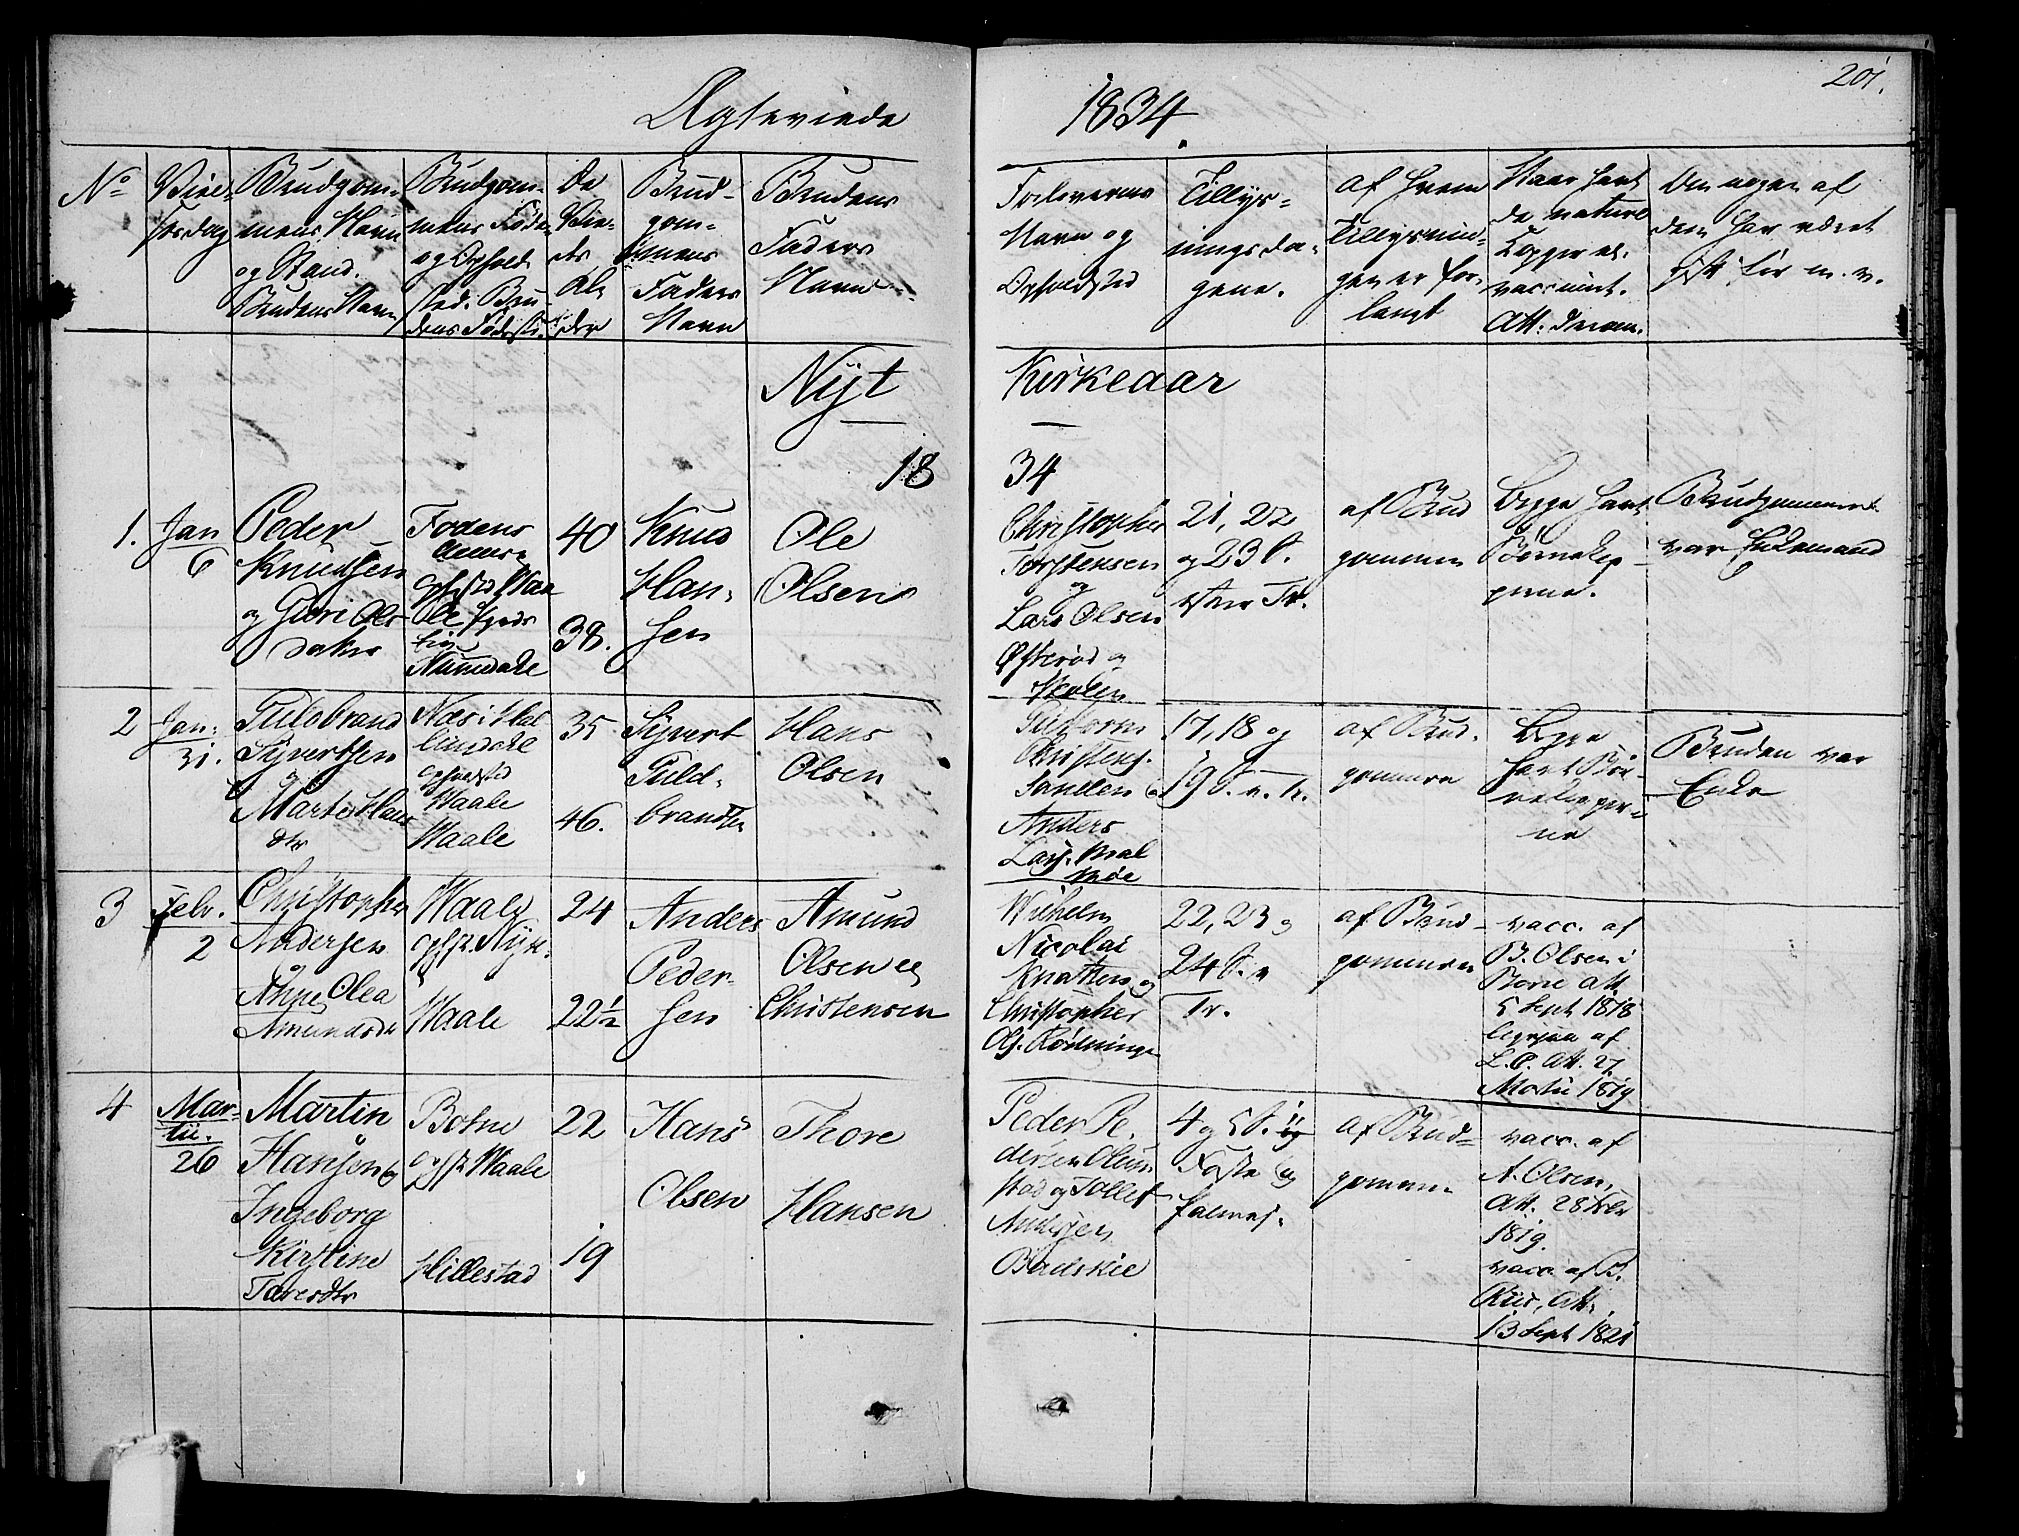 201.
Ægteviede
1834
No
Viel-
sesdag
Brudgom-
mens Navn
og Stand.
Brudens Navn
Brudgom-
mens Føde
og Opholds
sted. Bru-
dens Fødest.
De
Vie-
des
Al-
der
Brud-
gom-
mens
Faders
Navn
Brudens
Faders
Navn
Forlovernes
Navn og
Opholdsted
Tillys-
ningsda-
gene.
af hvem
Tillysnin-
gen er for-
langt
Naar havt
de naturl
Kopper el.
vaccineret.
Att. derom.
Om nogen af
dem har været
gift før m. v.
Nyt
Kirkeaar
18
34
1.
Jan
6
Peder
Knudsen
og Guri Ols
datter
Waa
Numedale
40
38.
Knud
Han-
sen
Ole
Olsen
Christopher
Torstensen
og
Lars Olsen
Østerød og
Skolen
21, 22
og 23 S.
efter Tr.
af Brud
gommen
Begge havt
Børnekop
perne.
Brudgommen
var Enkemand
2
Jan:
31.
Guldbrand
Syvertsen
og
Marte Hans
dtr
Næs i Hal
lingdale
opholdsted
Waale
Waale
35
46.
Syvert
Guld-
brandsen
Hans
Olsen
Guttorm
Christens.
Sandlen
Anders
Lars.
17, 18 og
19 S. e. Tr.
af Brud-
gommen
Begge
havt Bør-
nekopper-
ne
Bruden var
Enke
3
Febr.
2
Christopher
Andersen
Anne Olea
Amundsdr
Waale
Waale
24
22½
Anders
Peder-
sen
Amund
Olsen
Christensen
Wilhelm
Nicolai
Knatten og
Christopher
Ols. Rødningen
22, 23 og
24 S. e
Tr.
af Brud-
gommen
vacc. af
B. Olsen i
Borre Att
5 Sept 1818
ligesaa af
L. P. Att. 27
Martii 1819
4
Mar-
tii.
26
Martin
Hansen og
Ingeborg
Kirstine
Toresdtr
Botne
opst Waale
Hillestad
22
19
Hans
Olsen
Thore
Hansen
Peder Pe-
dersen Olum
stad og Tollef
Andersen
Bredskie
4 og 5 S. i
Faste og
af Brud-
gommen
vacc. af
A. Olsen,
Att. 28 Febr
1819.
vacc. af B.
Riis, Att.
13 Sept 1821